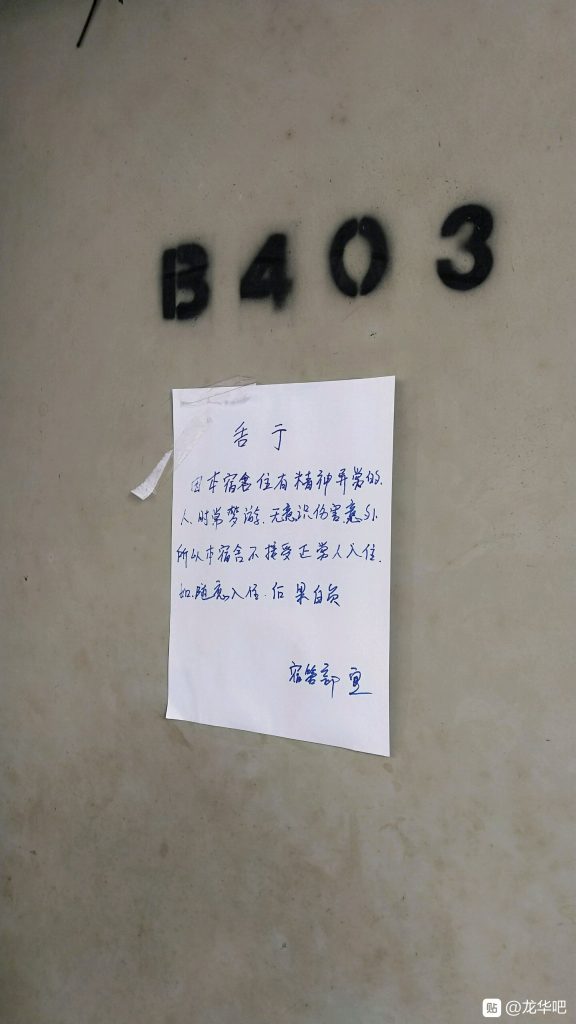 B403
告示
因本宿舍住有精神异常的
人.时常梦游.无意识伤害意外.
所以本宿舍不接受正常人入住.
如.随意入住.后果自负
宿管部 宣
贴 @龙华吧